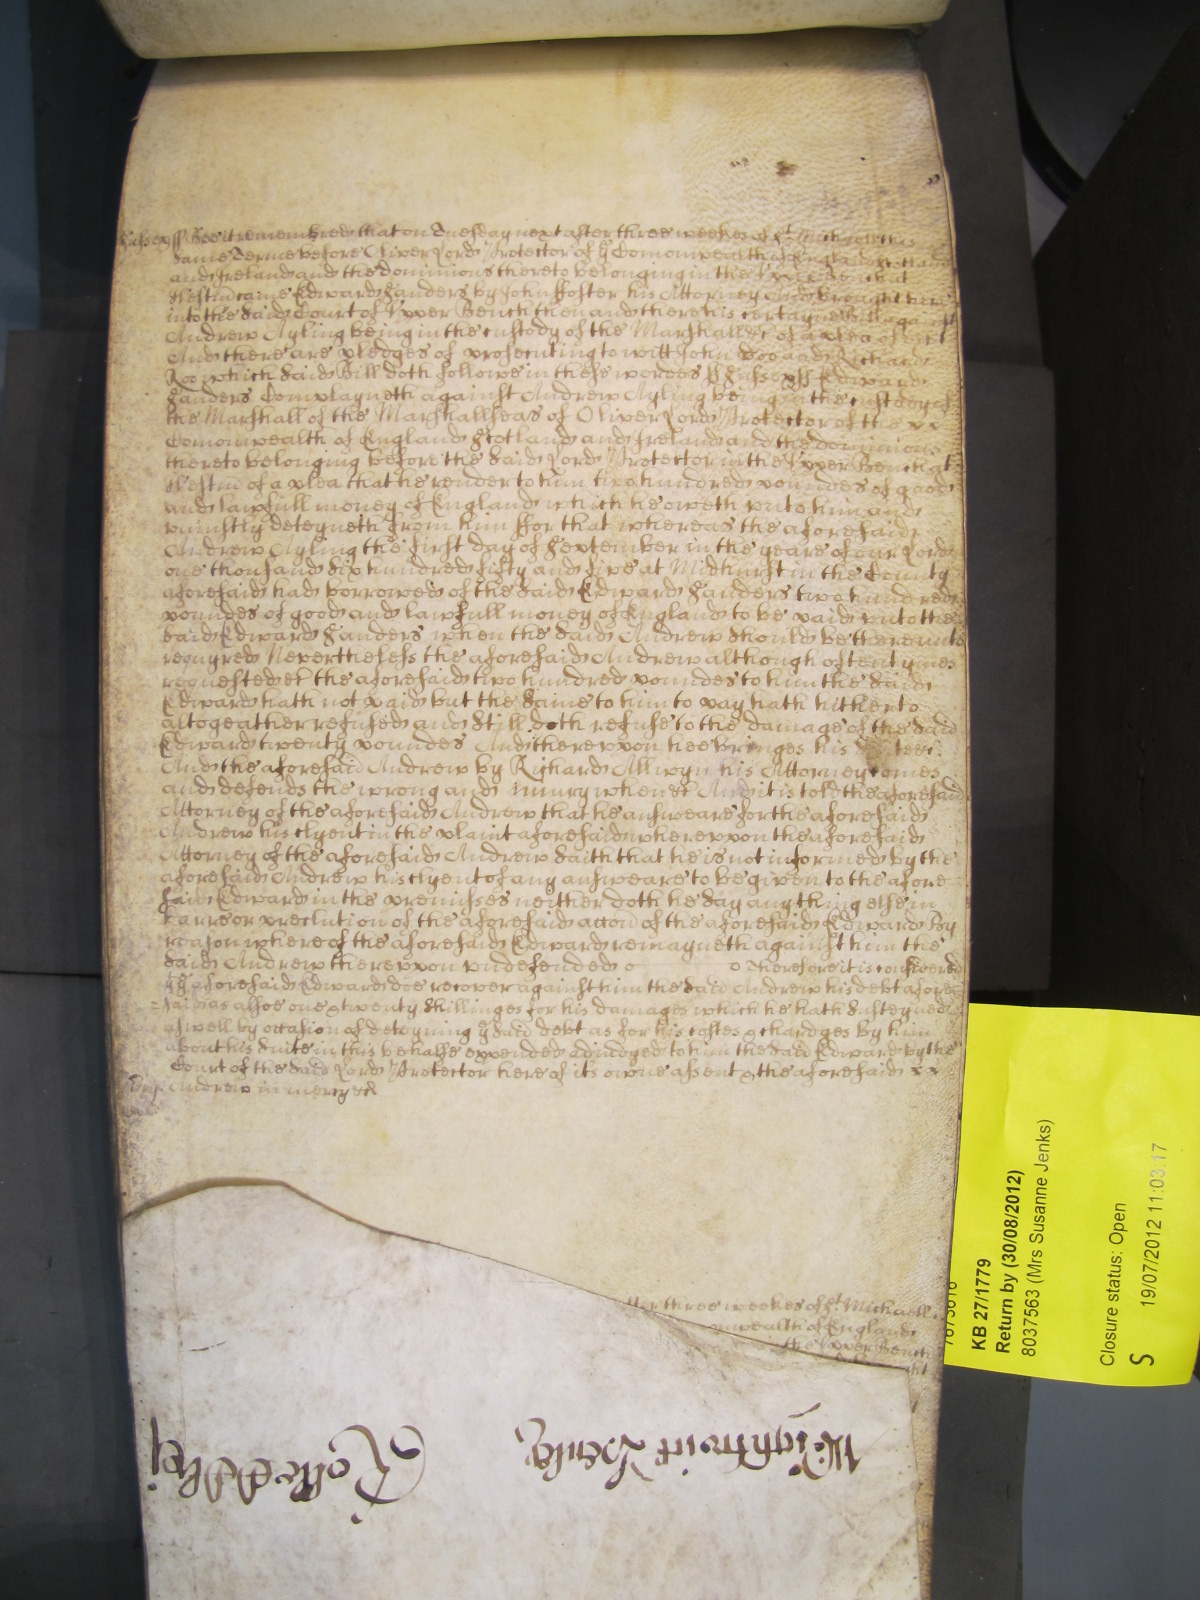 Sussex ss Bee it remembred that on Tuesday next after three weekes of St Michael this
same Terme before Oliver Lord Protector of ye Comonwealth of England Scotland
and Ireland and the dominions thereto belonging in the Upper Bench at
Westm came Edward Sanders by John Foster his Attorney And brought here
into the said Court of Upper Bench then and there his certayne Bill against
Andrew Ayling being in the custody of the Marshall &c of a plea of debt
And there are pledges of prosecuting to witt John Doo and Richard
Roo which said Bill doth followe in these wordes ss Sussex ss Edward
Sanders Complayneth against Andrew Ayling being in the custody of
the Marshall of the Marshallseas of Oliver Lord Protector of the
Comonwealth of England Scotland and Ireland and the dominions
thereto belonging before the said Lord Protector in the Upper Bench at
Westm of a plea that he render to him two hundred poundes of good
and lawfull money of England which he oweth unto him and
uniustly deteyneth from him ffor that whereas the aforesaid
Andrew Ayling the first day of September in the yeare of our Lord
one thousand six hundred fifty and five at Midhurst in the County
aforesaid had borrowed of the said Edward Sanders two hundred
poundes of good and lawfull money of England to be paid unto the
said Edward Sanders when the said Andrew should be thereunto
requyred Neverthelesse the aforesaid Andrew although oftentymes
requested &c the aforesaid two hundred poundes to him the said
Edward hath not paid but the same to him to pay hath hitherto
altogeather refused and still doth refuse to the damage of the said
Edward twenty poundes And thereupon hee bringes his suite &c
And the aforesaid Andrew by Richard Allwyn his Attorney comes
and defends the wrong and iniury when &c And it is told the aforesaid
Attorney of the aforesaid Andrew that he answeare for the aforesaid
Andrew his clyent in the plaint aforesaid whereupon the aforesaid
Attorney of the aforesaid Andrew saith that he is not informed by the
aforesaid Andrew his clyent of any answeare to be given to the afore
said Edward in the premisses neither doth he say any thing else in
barre or preclution of the aforesaid accon of the aforesaid Edward By
reason whereof the aforesaid Edward remayneth against him the
said Andrew thereupon undefended o o Therefore it is considered
aforesaid Edward doe recover against him the said Andrew his debt afore
said as alsoe one & twenty shillinges for his damages which he hath susteyned
aswell by occasion of deteyning ye said debt as for his costes & chardges by him
about his suite in this behalfe expended adiudged to him the said Edward by the
Court of the said Lord Protector here of its owne assent & the aforesaid
Andrew in mercy &c
after three weekes of St Michaell
omwealth of England
in the Upper Bench
KB 27/1779
Return by (30/08/2012)
8037563 (Mrs Susanne Jenks)
Closure status: Open
S 19/07/2012 11:03:17